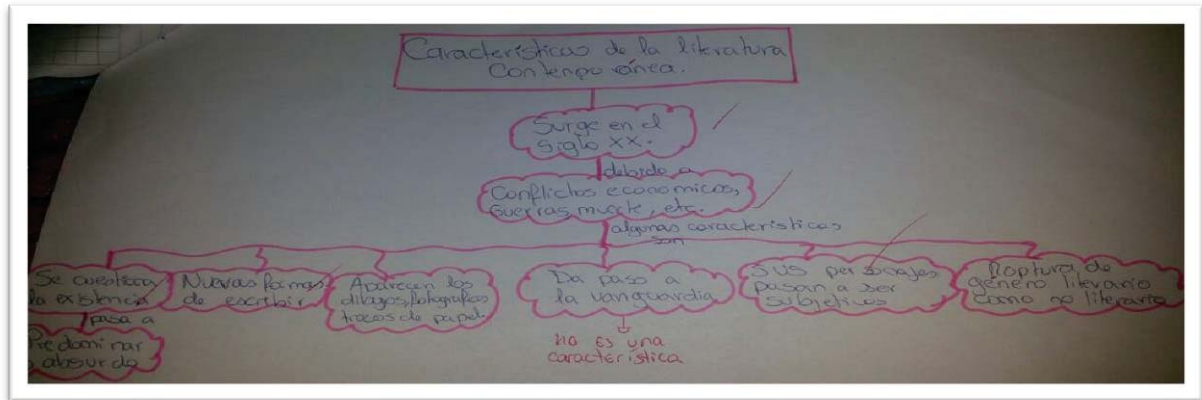 Características de la literatura
Contemporánea.
Surge en el
siglo XX.
debido a
Conflictos economicos,
guerras, muerte, etc.
algunas caracteristicas
son
Se cuestiona
la existencia
pasa a
Predominar
absurdo
Nuevas formas
de escribir
Aparecen los
dibujos, fotografias
trozos de papel.
Da paso a
la vanguardia
no es una
característica
SUS personajes
pasan a ser
subjetivos
Roptura de
género literario
como no literario